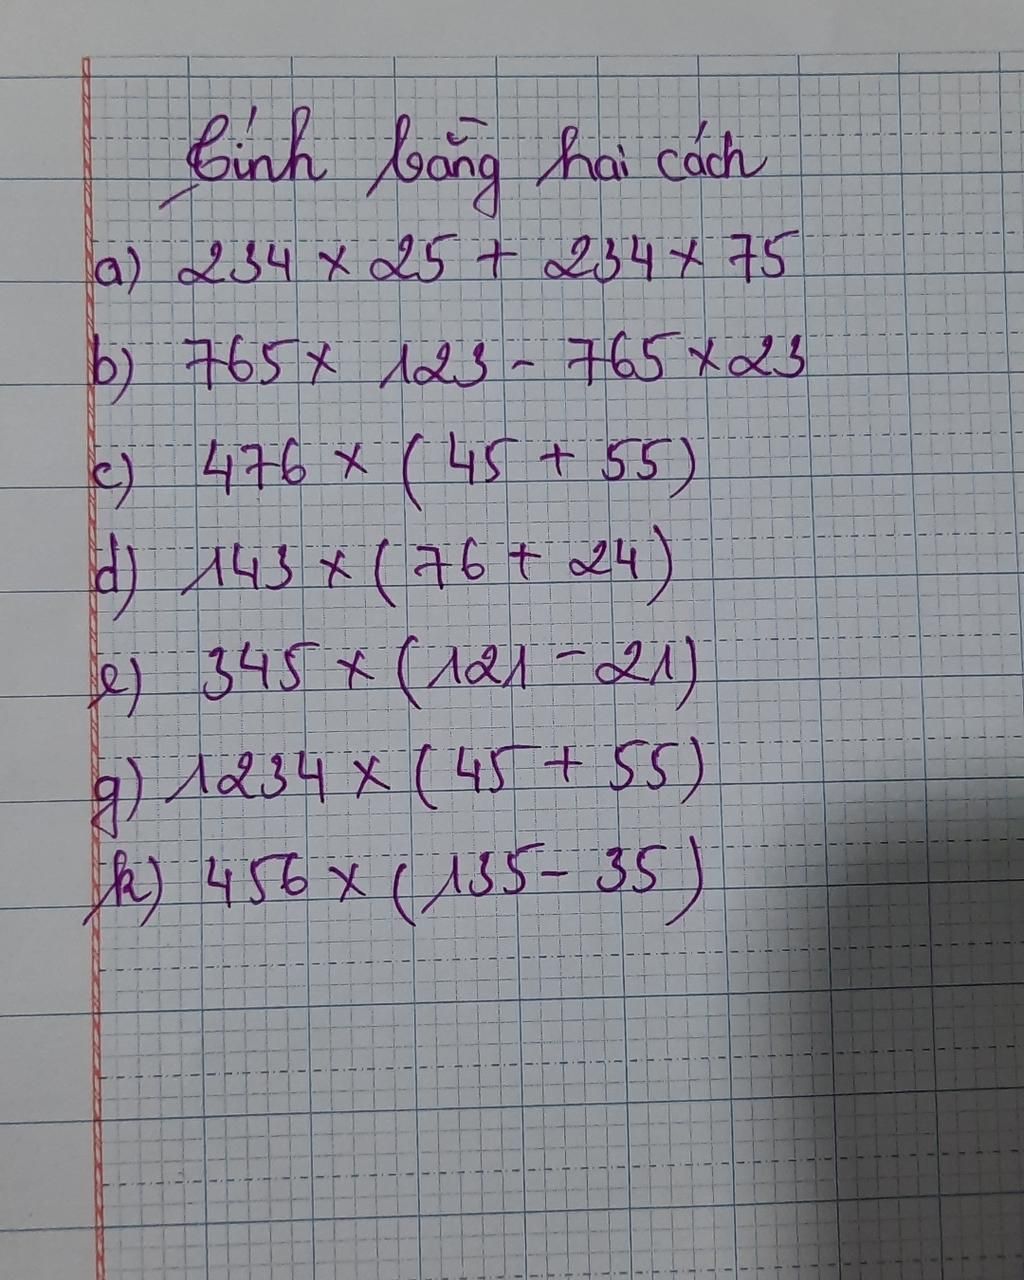 Tính bằng hai cách
a) 234 x 25 + 234 x 75
b) 765 x 123 - 765 x 23
c) 476 x ( 45 + 55)
d) 143 x ( 76 + 24)
e) 345 x (121 - 21)
g) 1234 x ( 45 + 55)
h) 456 x ( 135 - 35 )